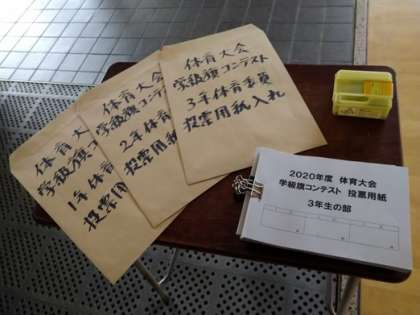 体育大会
学級旗コンテスト
1年体育
投票用
体育大会
学級旗コンテスト
2年体育
投票用紙
体育大会
学級旗コンテスト
3年体育委員
投票用紙入れ
2020年度 体育大会
学級旗コンテスト 投票用紙
3年生の部